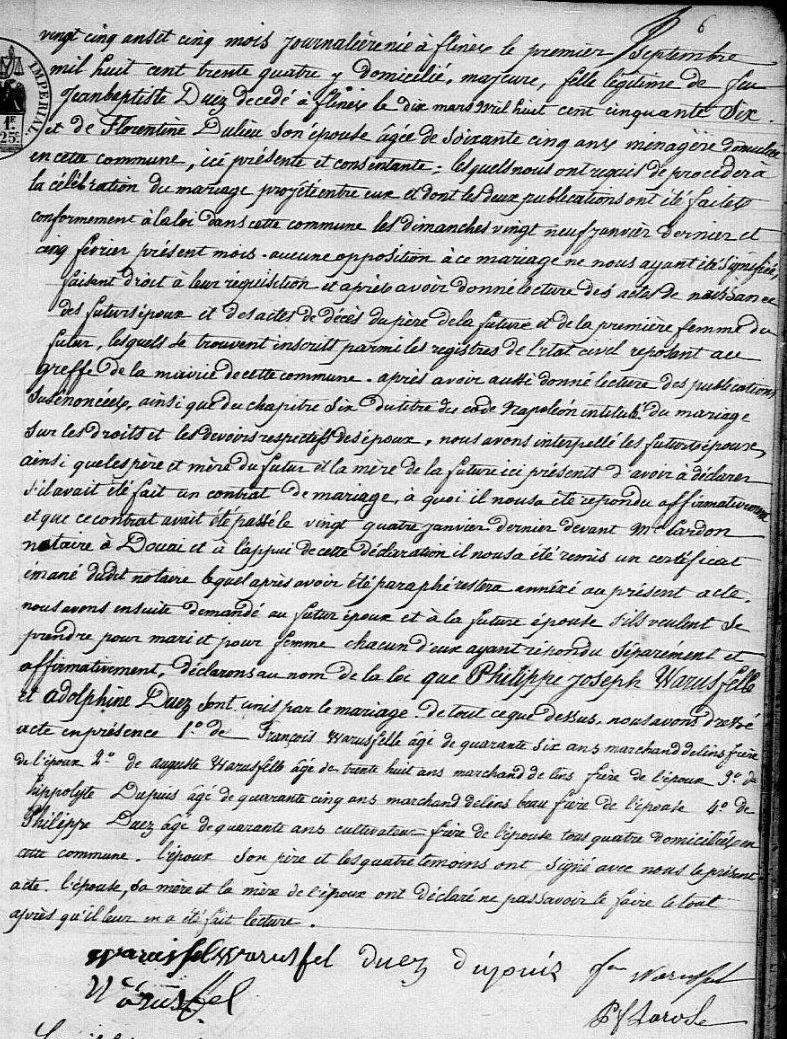 6
vingt cinq ans et cinq mois journalière né à flines le premier Septembre
mil huit cent trente quatre y domicilié, majeure, fille légitime de feu
Jeanbaptiste Duez decedé à flines le dix mars mil huit cent cinquante Six.
et de Florentine Dulieu Son épouse âgée de Soixante cinq ans ménagère domiciliée
en cette commune, ici présente et consentante : lesquels nous ont requis de procéder à
la célébration du mariage projété entre eux et dont les deux publications ont été faites
conformement à la loi dans cette commune les dimanches vingt neuf janvier dernier et
cinq février présent mois. aucune opposition à ce mariage ne nous ayant été Signifiée,
faisant droit à leur réquisition et après avoir donné lecture des actes de naissance
des futurs époux et des actes de décès du père de la future et de la première femme du
futur, lesquels Se trouvent inscrits parmi les registres de l'état civil reposant au
greffe de la mairie de cette commune. après avoir aussi donné lecture des publications
Susénoncées, ainsi que du chapitre Six du titre du code Napoléon intitulé du mariage
Sur les droits et les devoirs respectifs des époux, nous avons interpellé les futurs époux,
ainsi que les père et mère du futur et la mère de la future ici présents d'avoir à déclarer
S'il avait été fait un contrat de mariage, à quoi il nous a été repondu affirmativement
et que ce contrat avait été passé le vingt quatre janvier dernier devant Me Cardon
notaire à Douai et à l'appui de cette déclaration il nous a été remis un certificat
émané dudit notaire lequel après avoir été paraphé restera annéxé au présent acte
nous avons ensuite demandé au futur époux et à la future épouse S'ils veulent Se
prendre pour mari et pour femme chacun d'eux ayant répondu Séparément et
affirmativement, déclarons au nom de la loi que Philippe Joseph Warusfelle
et adolphine Duez Sont unis par le mariage. de tout ce que dessus, nous avons dressé
acte en présence 1.º de François Warusfelle âgé de quarante Six ans marchand de lins frère
de l'époux 2.º de auguste Warusfelle âgé de trente huit ans marchand de lins frère de l'époux 3.º de
hippolyte Dupuis âgé de quarante cinq ans marchand de lins beau frère de l'épouse 4.º de
Philippe Duez âgé de quarante ans cultivateur frère de l'épouse tous quatre domiciliés en
cette commune. l'époux Son père et les quatre témoins ont Signé avec nous le présent
acte. l'épouse, Sa mère et la mère de l'époux ont déclaré ne pas savoir le faire le tout
après qu'il leur en a été fait lecture.
warusfel warusfel duez dupuis fois warusfel
Warusfel
IMPERIAL
1F
25c